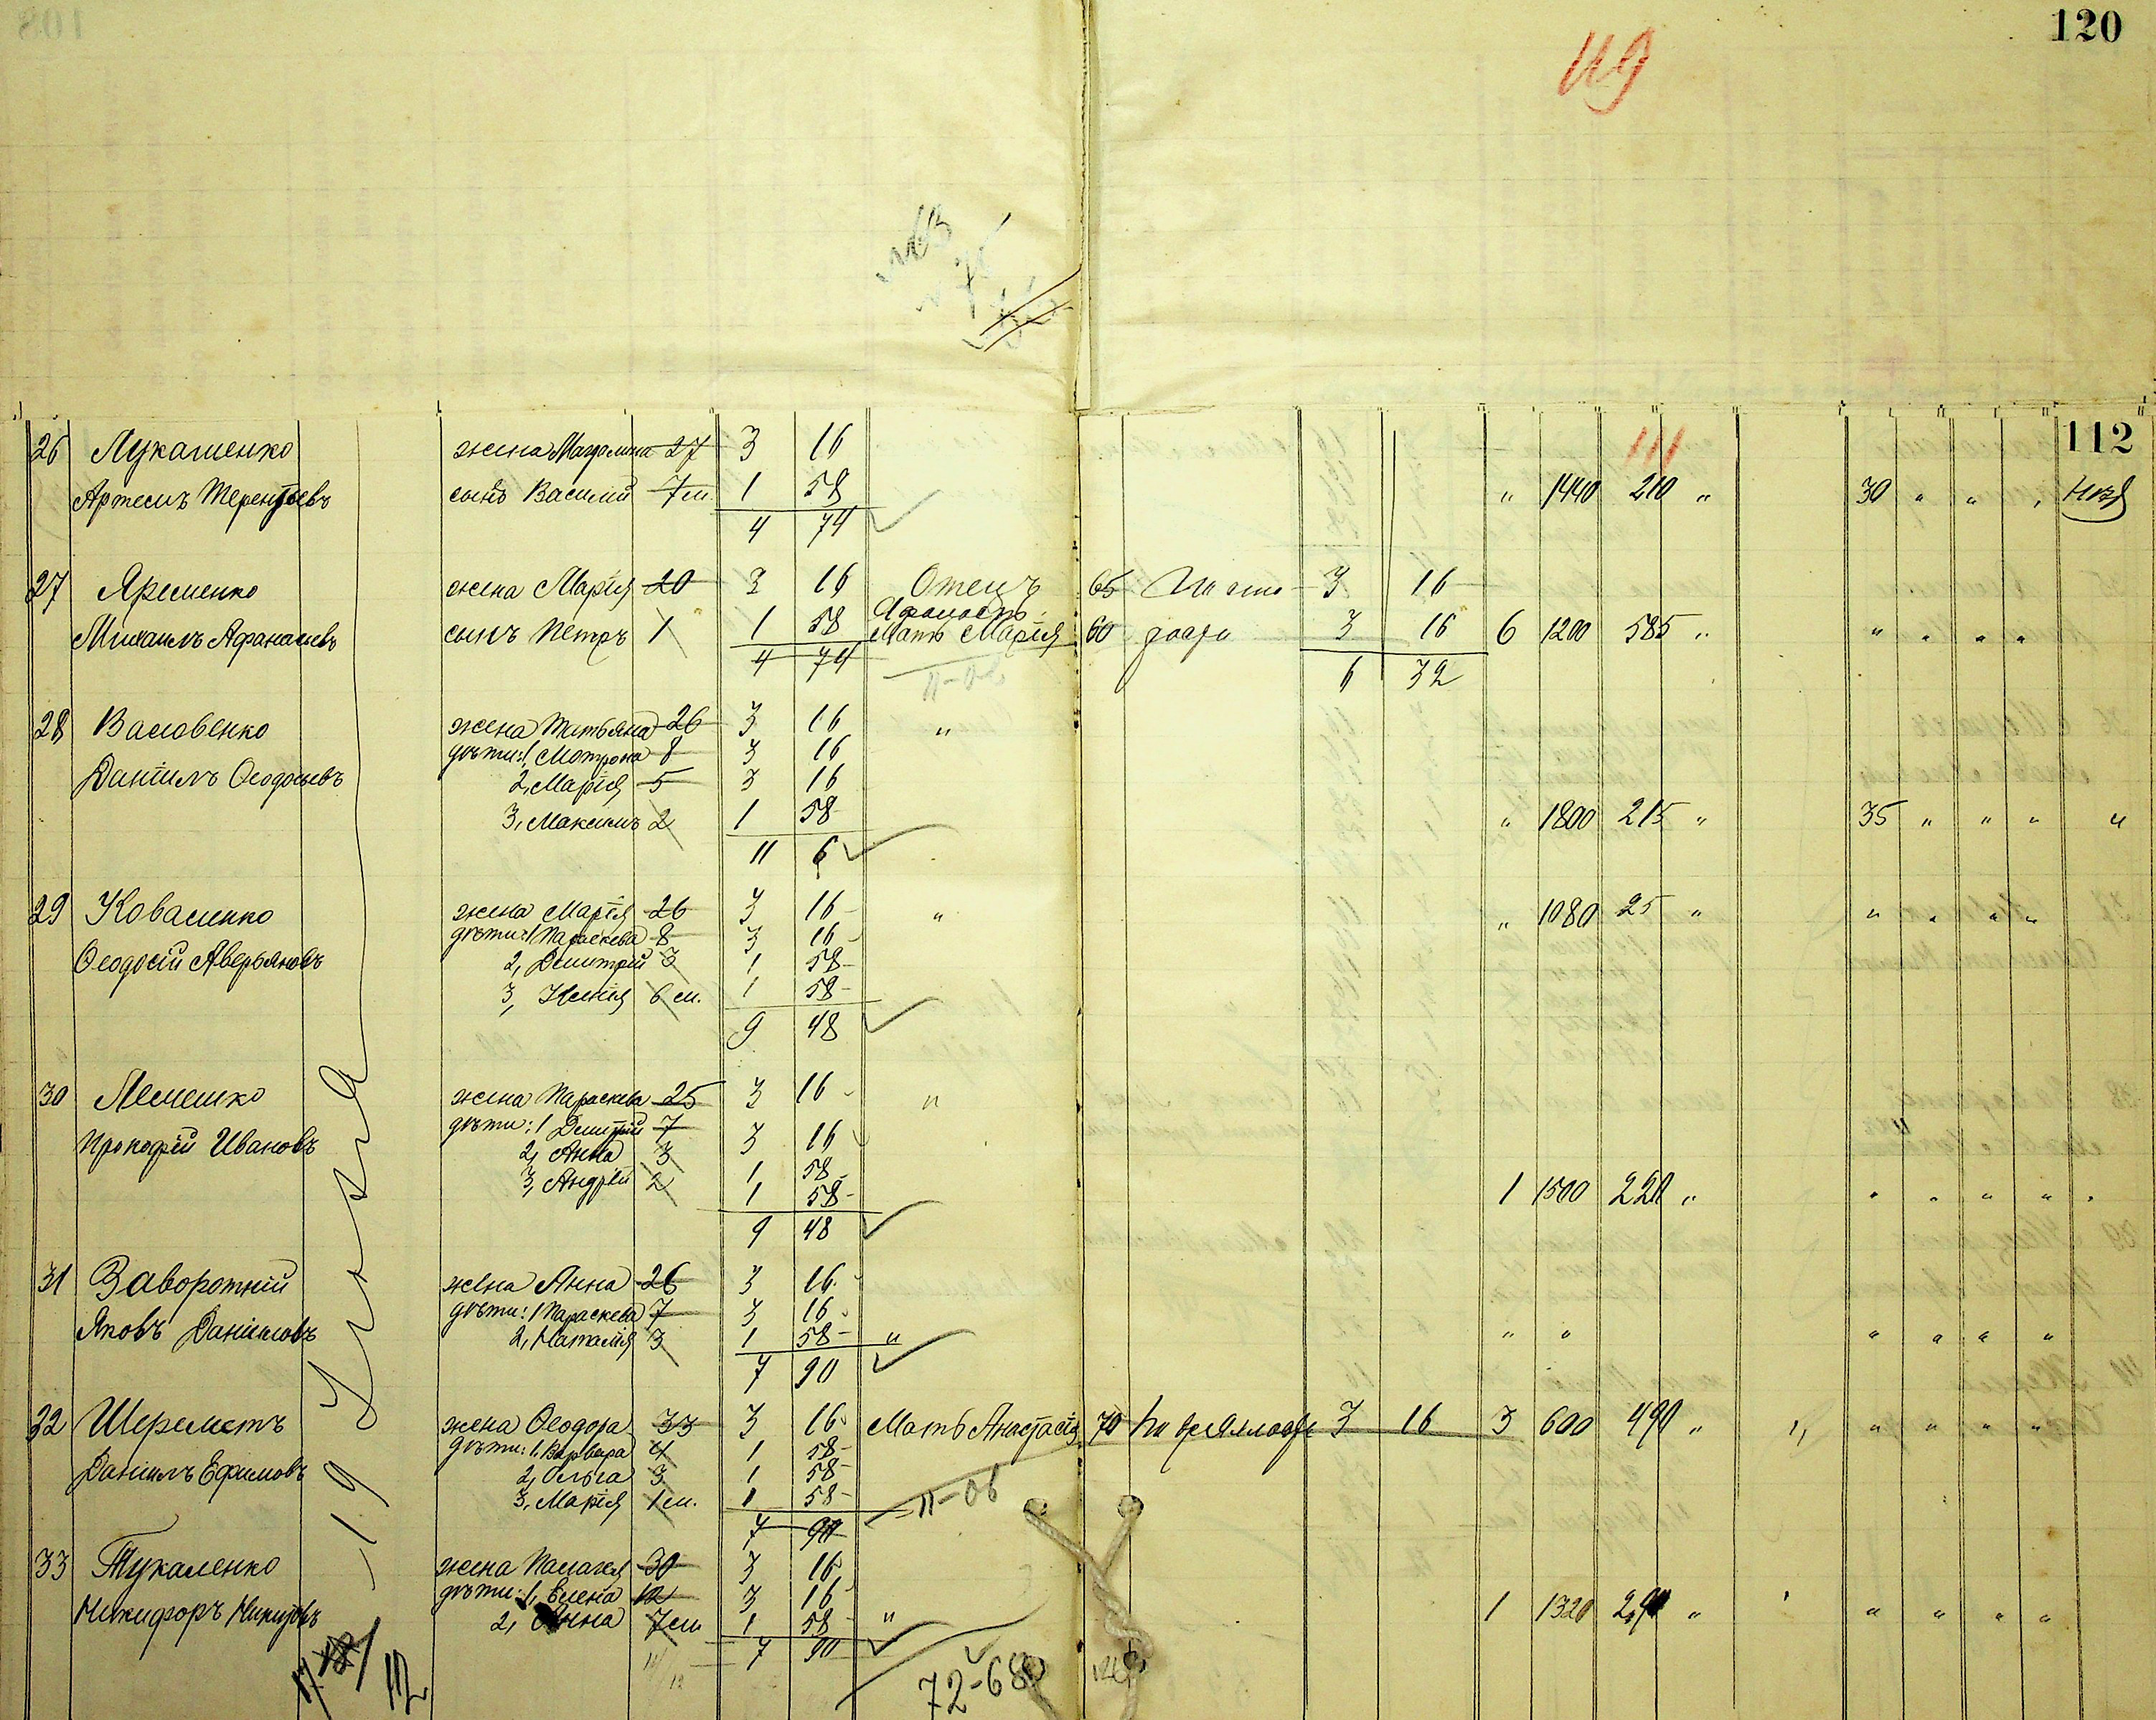 120
119
111
112
26 Лукашенко жена Магдалина 27 3 16
Артемъ Терентьевъ сынъ Василий 7 м. 1 58 " 1440 210 " 30 " " "
4 74
27 Яременко жена Марія 20 3 16 Отецъ 65 3 16
Михаилъ Афанасьевъ сынъ Петръ 1 1 58 Мать Марія 60 3 16 6 1200 585 " " " " "
4 74 6 32
28 Васовенко жена Татьяна 26 3 16 "
дѣти: 1, Мотрона 8 3 16
Даніилъ Ѳеодосьевъ 2, Марія 5 3 16
3, Максимъ 2 1 58 " 1800 215 " 35 " " " "
11 6
29 Коваленко жена Марія 26 3 16 " " 1080 25 " " " " "
дѣти: 1 Параскева 8 3 16
Ѳеодосій Аверьяновъ 2, Дмитрій 3 1 58
3, Ксенія 6 м. 1 58
9 48
30 Лемешко жена Параскева 25 3 16 "
дѣти: 1 Дмитрій 7 3 16
Прокофій Ивановъ 2, Анна 3 1 58
3, Андрѣй 2 1 58 1 1500 220 " " " " " "
9 48
31 Заворотній жена Анна 26 3 16
дѣти: 1 Параскева 7 3 16
Яковъ Даніиловъ 2, Наталія 3 1 58 " " " " " " "
7 90
32 Шереметъ жена Ѳеодора 33 3 16 Мать Анастасія 70 3 16 3 600 490 " " " " " "
дѣти: 1, Варвара 4 1 58
Даніилъ Ефимовъ 2, Ольга 3 1 58
3, Марія 1 м. 1 58 11-06
7 90
33 Тукаленко жена Палагея 30 3 16
дѣти: 1, Елена 10 3 16
Никифоръ Никитовъ 2, Анна 7 м 1 58 " 1 1320 " " " " " "
7 90
112
72-68